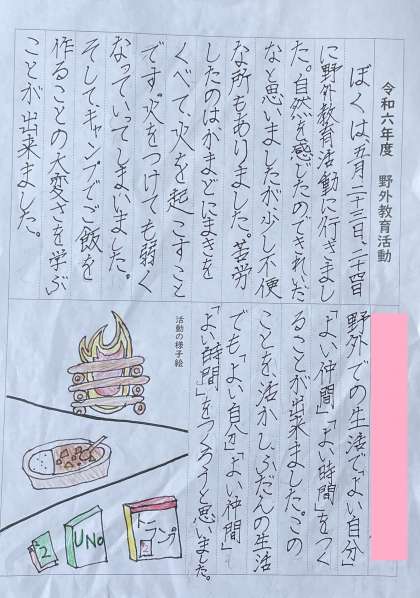 令和六年度 野外教育活動
ぼくは、五月二十三日、二十四日
に野外教育活動に行きまし
た。自然を感じたのできれいだ
なと思いましたが少し不便
な所もありました。苦労
したのはがまどにまきを
くべて、火を起こすこと
です。火をつけても弱く
なっていってしまいました。
そして、キャンプでご飯を
作ることの大変さを学ぶ
ことが出来ました。
野外での生活で「よい自分」
「よい仲間」「よい時間」をつく
ることが出来ました。この
ことを、活かしふだんの生活
でも「よい自分」「よい仲間」
「よい時間」をつくろうと思いました。
活動の様子絵
2
UNO
トランプ
2